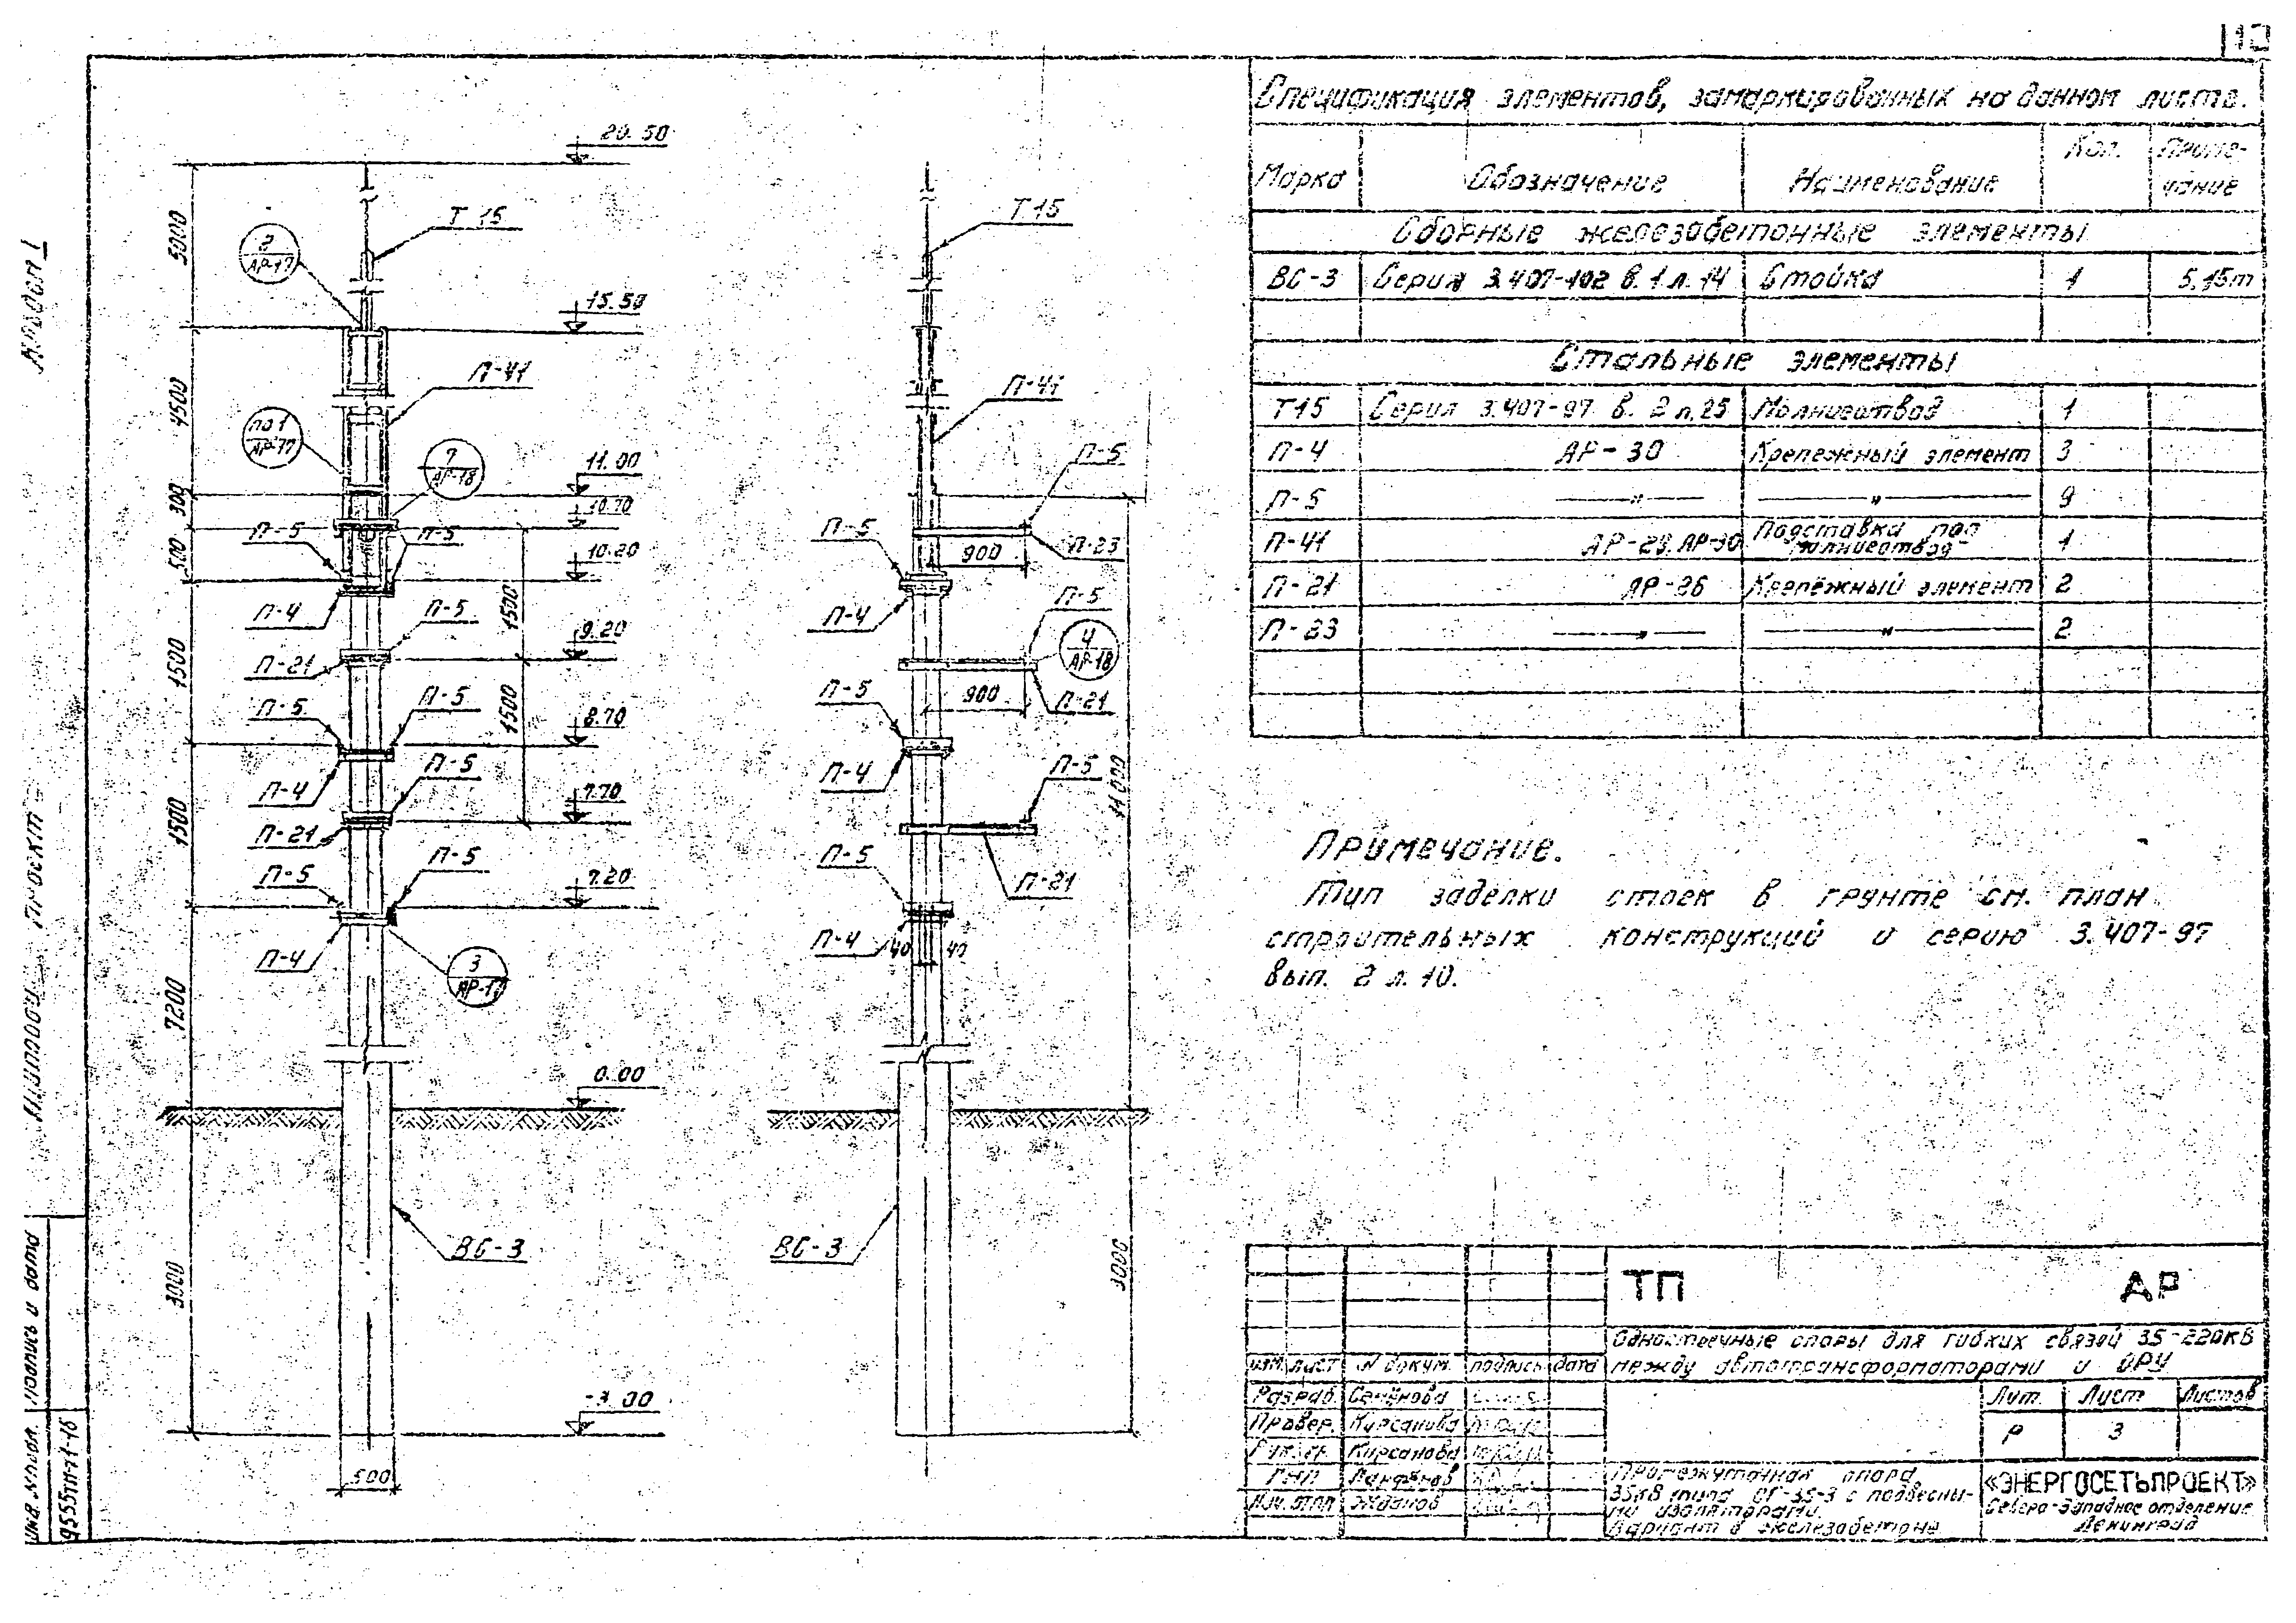 20.50
5000
Т 15
2
АР-17
15.50
4500
П-41
по 1
АР-17
7
АР-18
11.00
300
10.70
П-5
П-5
500
10.20
П-4
П-5
1500
9.20
П-21
1500
П-5
П-5
1500
8.70
П-4
П-5
7.70
1500
П-21
П-5
П-5
7.20
П-4
3
АР-17
7200
0.00
ВС-3
3000
-3.00
500
Т 15
П-41
П-5
П-5
900
П-23
П-4
П-5
4
АР-18
П-5
900
П-21
П-4
П-5
11000
П-5
П-21
П-4
40
40
ВС-3
3000
Спецификация элементов, замаркированных на данном листе.
Марка Обозначение Наименование Кол. Приме-
чание
Сборные железобетонные элементы
ВС-3 Серия 3.407-102 в.1 л.14 Стойка 1 5,15т
Стальные элементы
Т15 Серия 3.407-97 в. 2 л.25 Молниеотвод 1
П-4 АР-30 Крепежный элемент 3
П-5 —"— —"— 9
П-41 АР-29, АР-30 Подставка под
молниеотвод 1
П-21 АР-26 Крепёжный элемент 2
П-23 —"— —"— 2
Примечание.
Тип заделки стоек в грунте см. план
строительных конструкций и серию 3.407-97
вып. 2 л. 10.
ТП АР
Одностоечные опоры для гибких связей 35-220кВ
между автотрансформаторами и ОРУ
изм. лист N докум. подпись дата
Разраб. Семёнова
Провер. Кирсанова
Кирсанова
ГИП
Нач. отд. Жданов
Лит. Лист Листов
Р 3
Промежуточная опора
35кВ типа ОГ-35-3 с подвесны-
ми изоляторами.
Вариант в железобетоне
«ЭНЕРГОСЕТЬПРОЕКТ»
Северо-Западное отделение
Ленинград
Альбом I
Типовой проект
Подпись и дата
Инв. N подл.
9555тм-т1-16